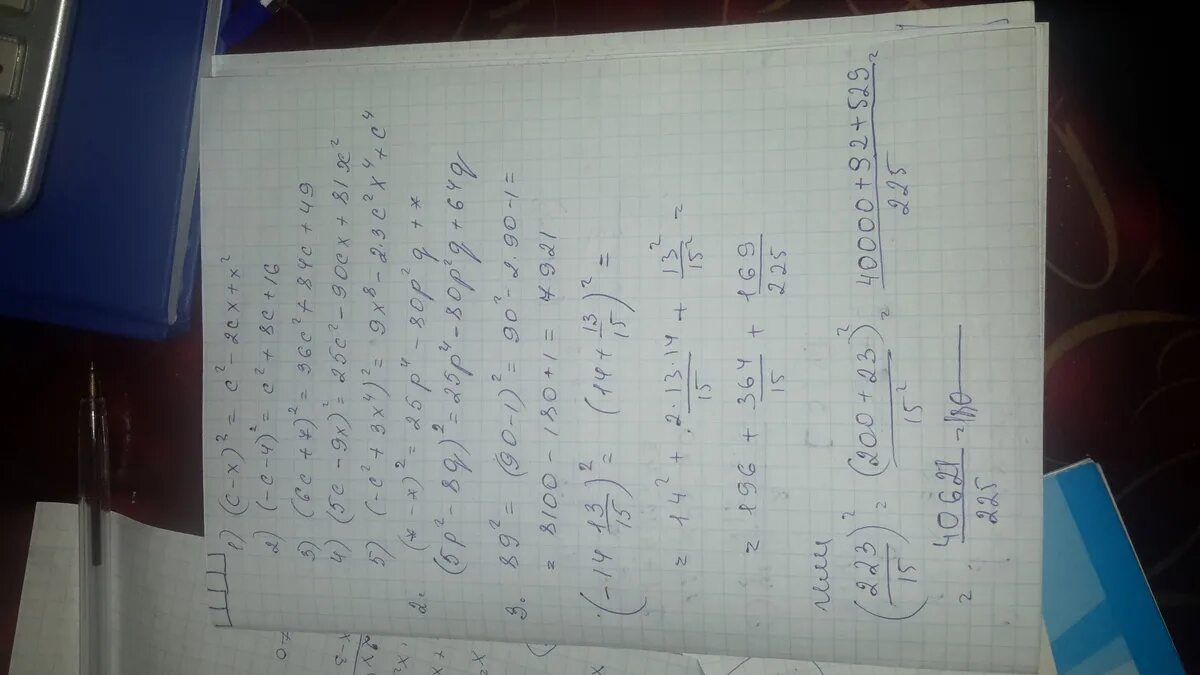 1) (c-x)² = c² - 2cx + x²
2) (-c-4)² = c² + 8c + 16
3) (6c + 7)² = 36c² + 84c + 49
4) (5c - 9x)² = 25c² - 90cx + 81x²
5) (-c² + 3x⁴)² = 9x⁸ - 2·3c²x⁴ + c⁴
2. (* - x)² = 25p⁴ - 80p²q + *
(5p² - 8q)² = 25p⁴ - 80p²q + 64q
3. 89² = (90-1)² = 90² - 2·90·1 =
= 8100 - 180 + 1 = 7921
(-14 13/15)² = (14 + 13/15)² =
= 14² + 2·13·14/15 + 13²/15² =
= 196 + 364/15 + 169/225
или
(223/15)² = (200+23)²/15² = 40000+92+529/225 =
= 40621/225 =